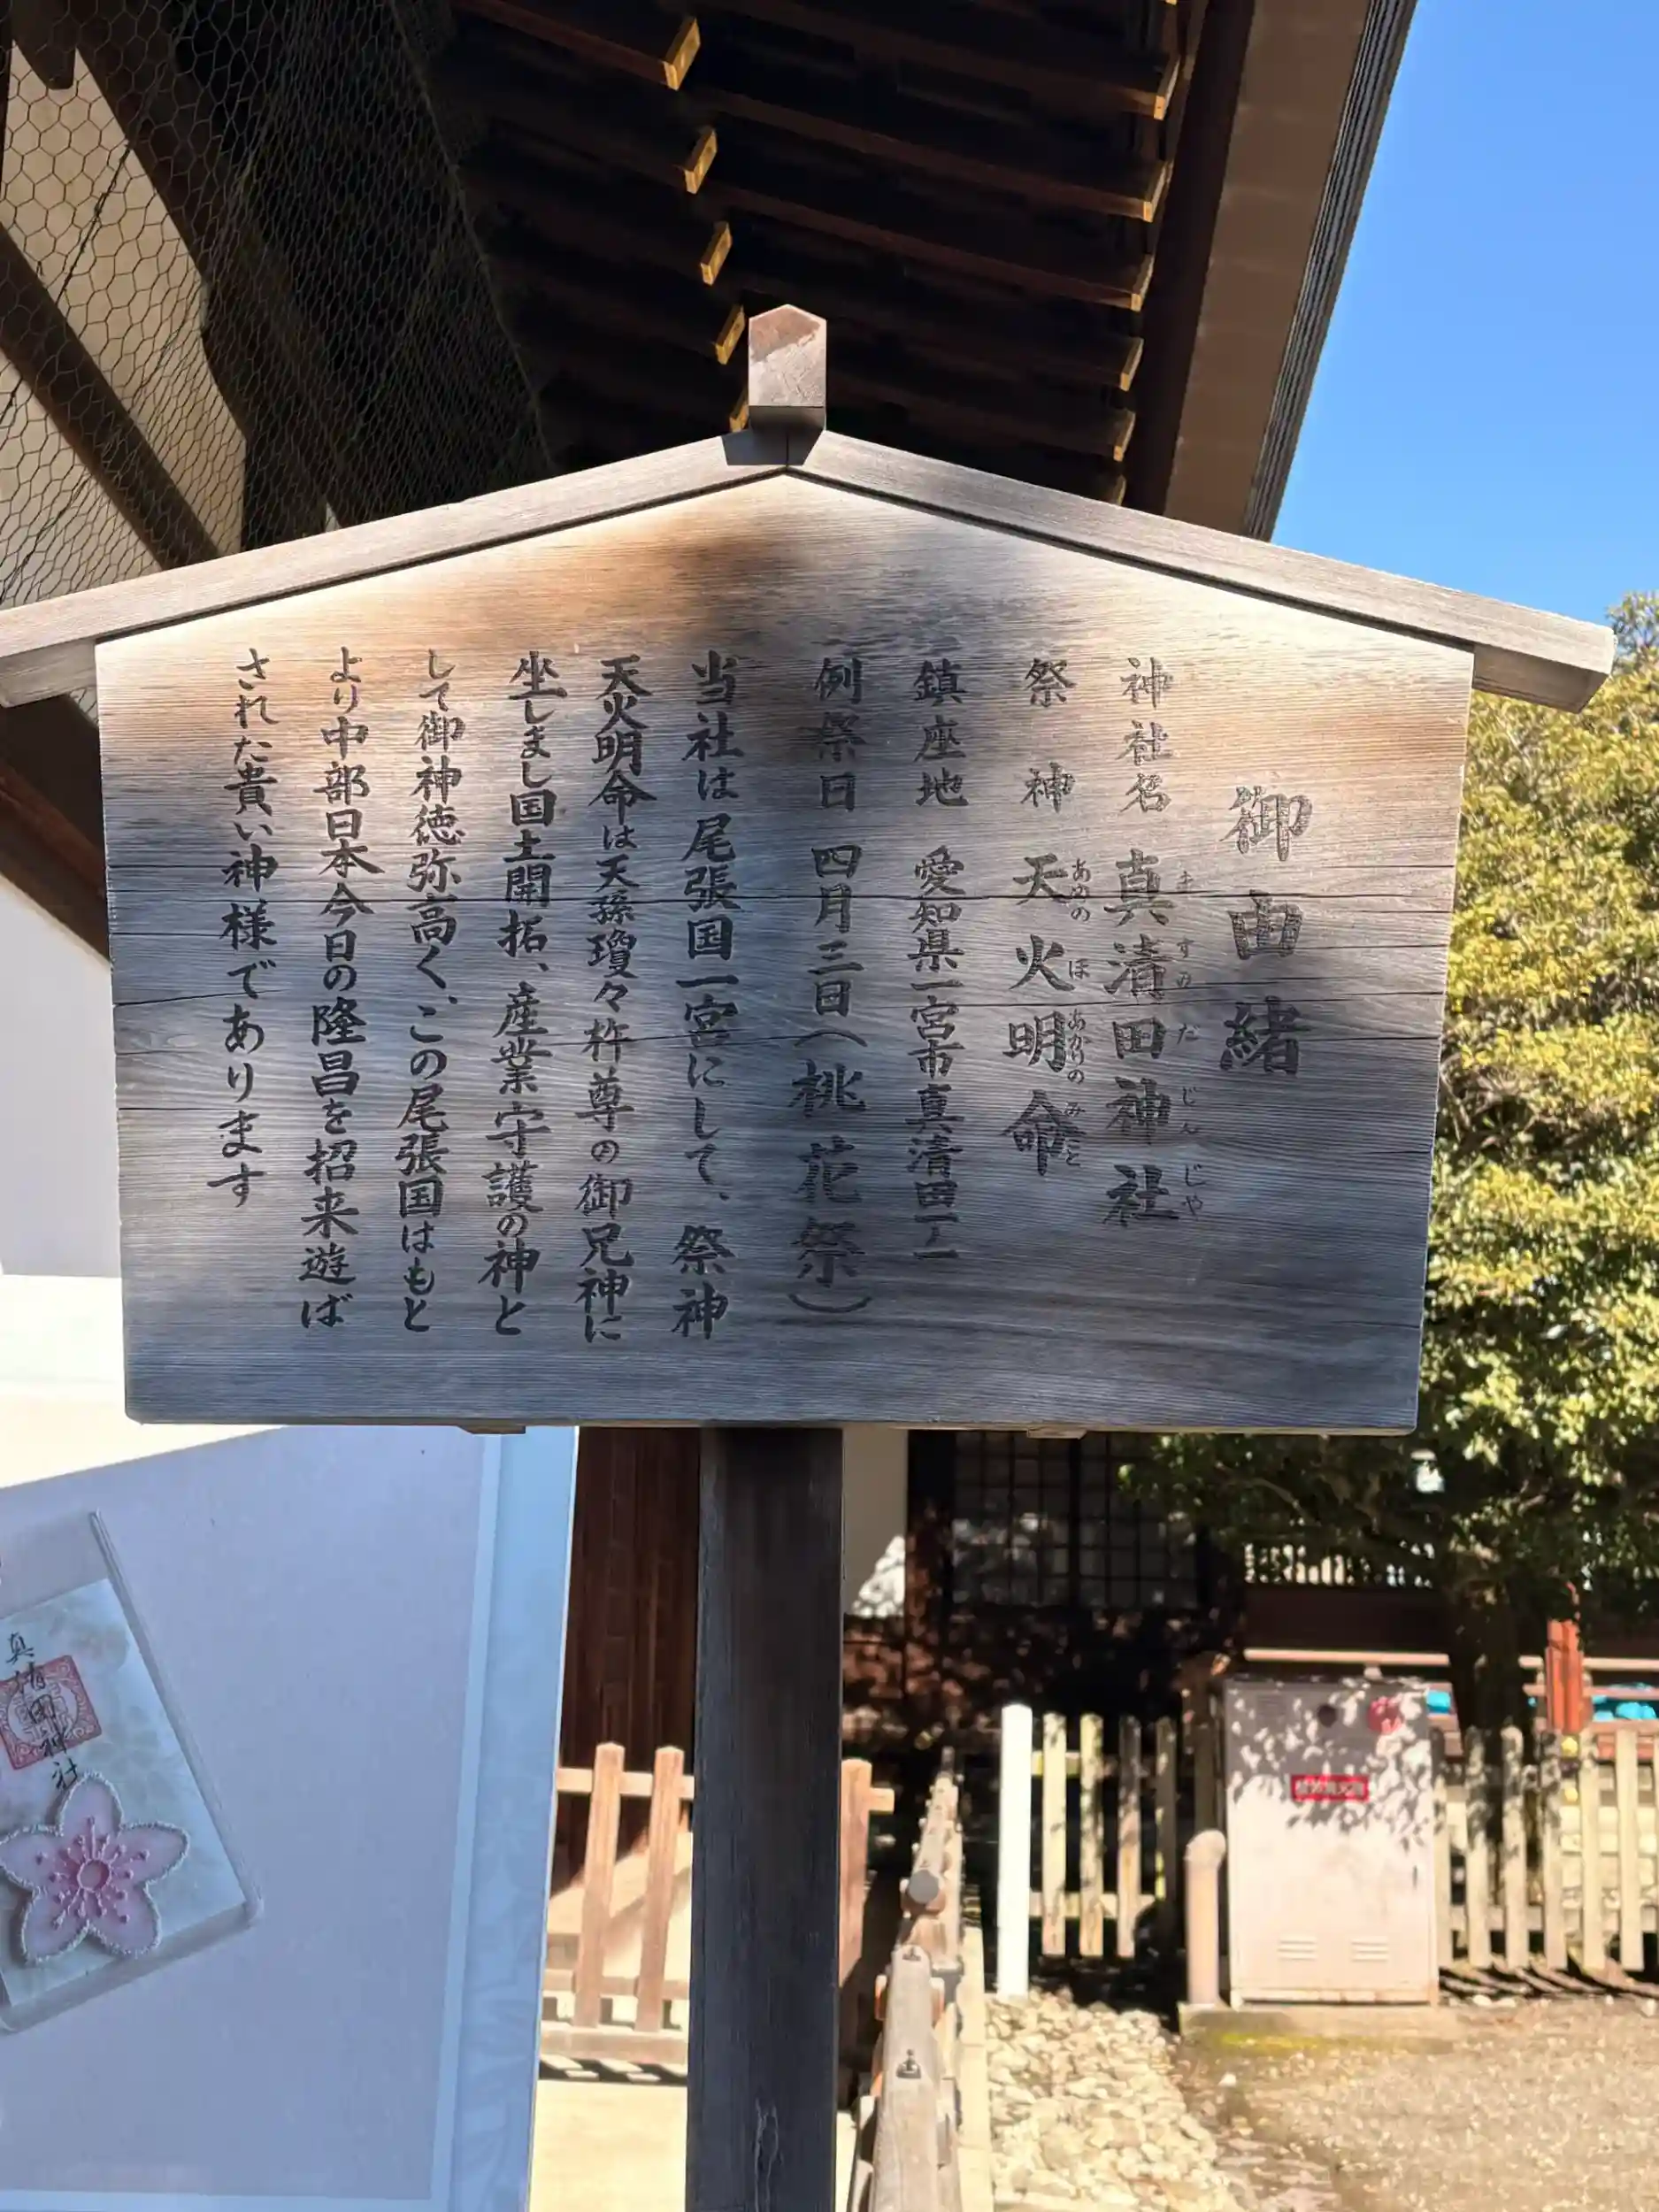 御由緒
神社名 真清田神社
ますみたじんじゃ
祭神 天火明命
あめのほあかりのみこと
鎮座地 愛知県一宮市真清田一ノ一
例祭日 四月三日(桃花祭)
当社は尾張国一宮にして、祭神
天火明命は天孫瓊々杵尊の御兄神に
坐しまし国土開拓、産業守護の神と
して御神徳弥高く、この尾張国はもと
より中部日本今日の隆昌を招来遊ば
された貴い神様であります
真清田神社